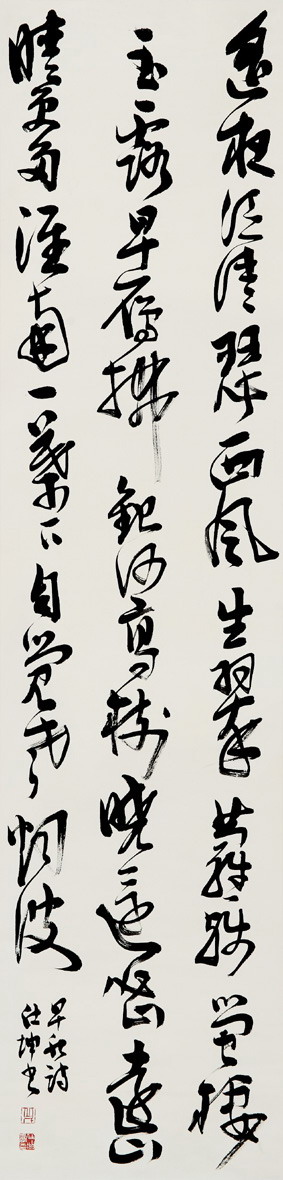 遥夜泛清瑟西风生翠萝残萤栖
玉露早雁拂银河高树晓还密远山
晴更多淮南一叶下自觉老烟波
早秋诗